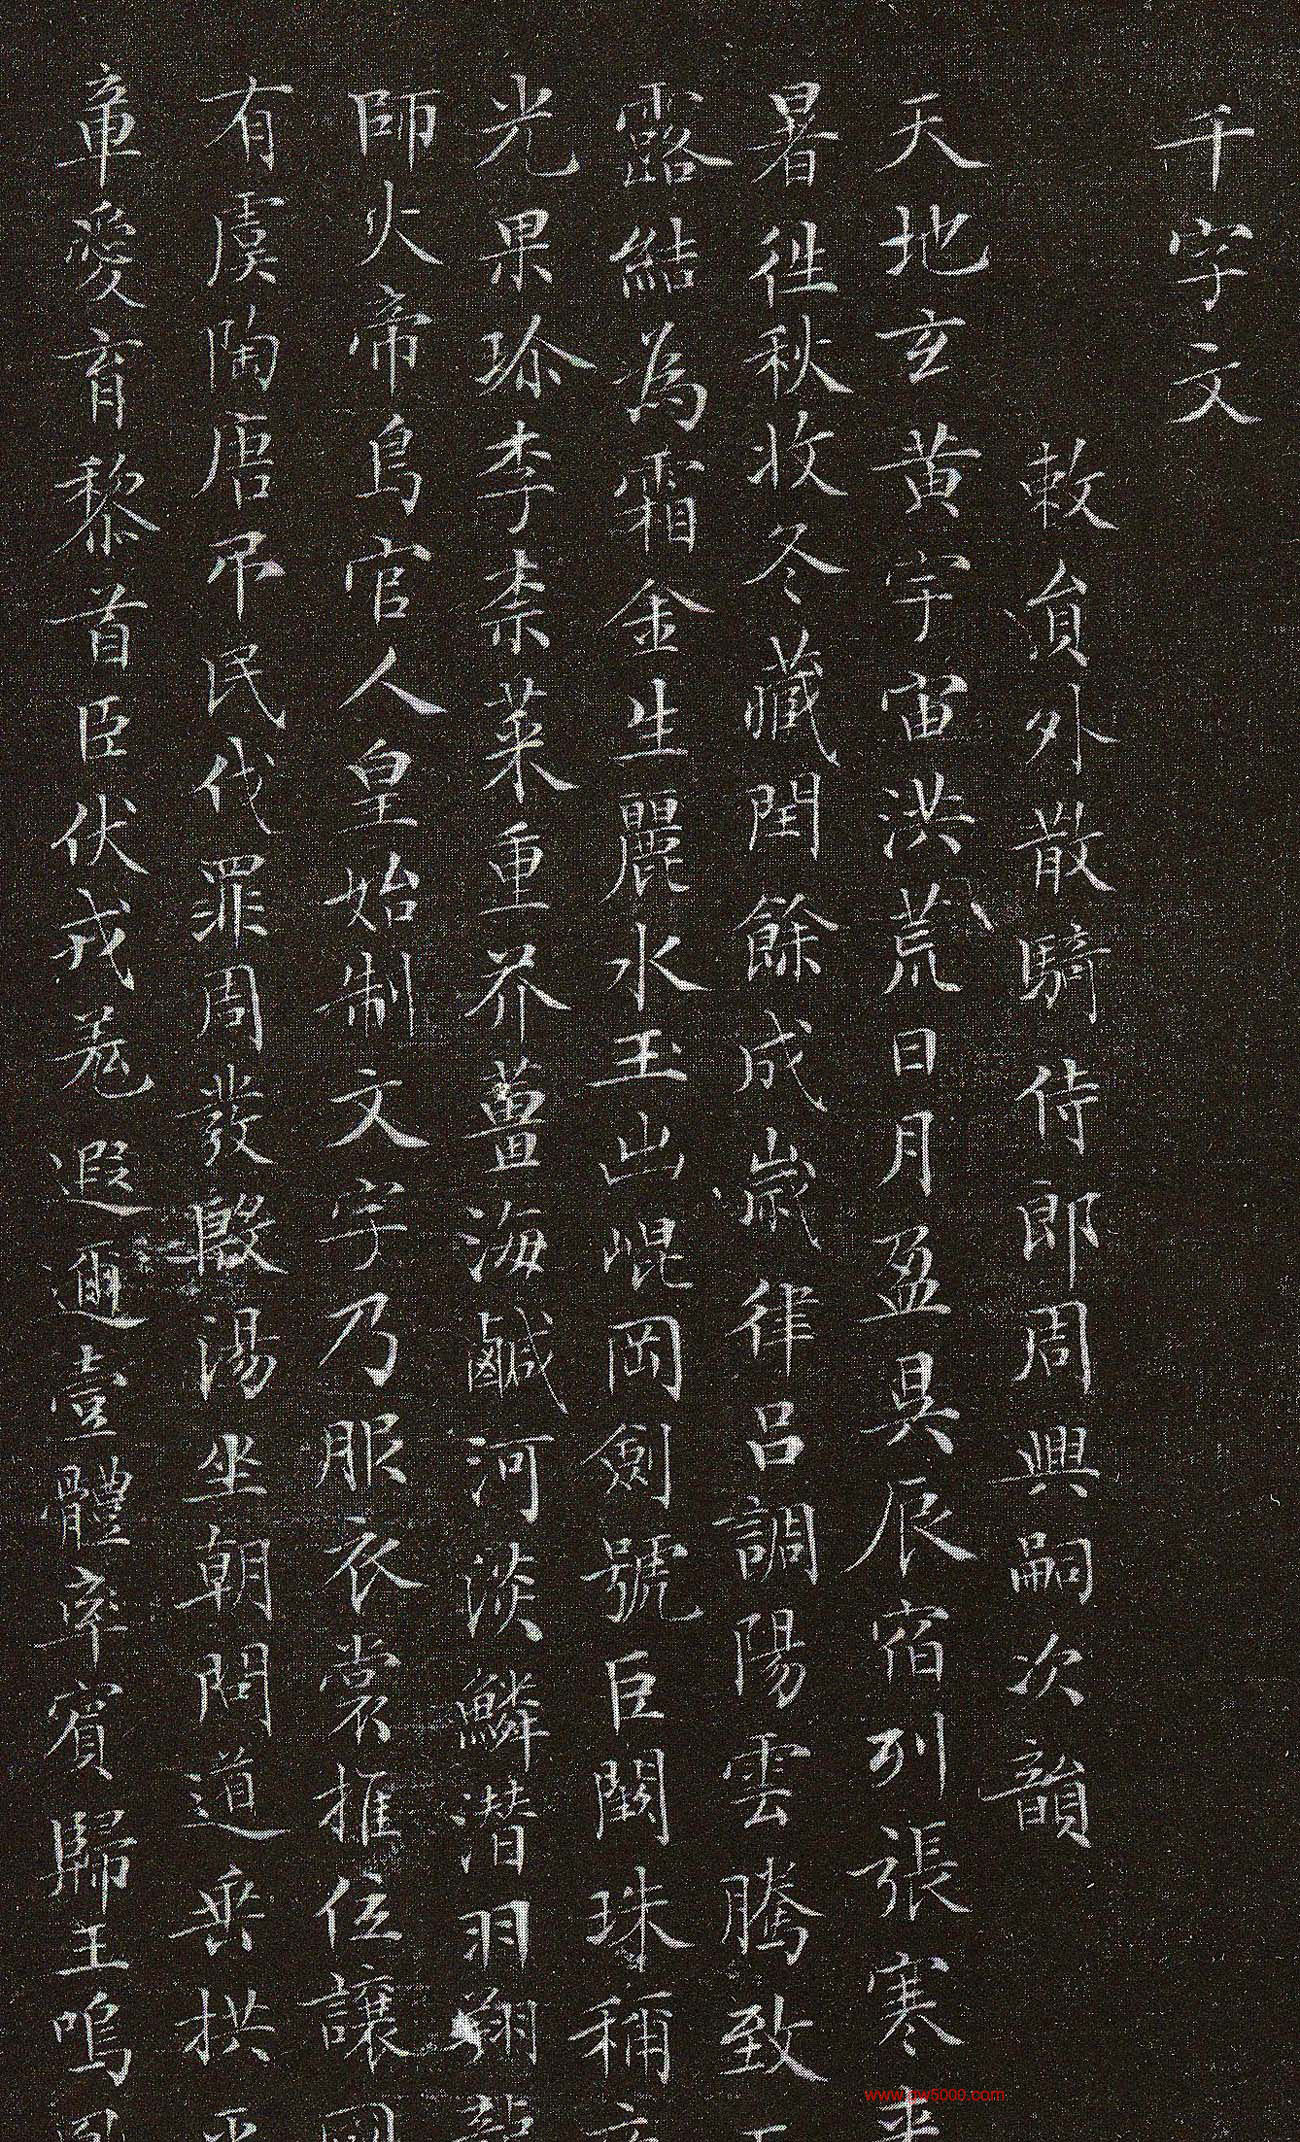 千字文
敕員外散騎侍郎周興嗣次韻
天地玄黃宇宙洪荒日月盈昃辰宿列張寒來
暑往秋收冬藏閏餘成歲律呂調陽雲騰致
露結為霜金生麗水玉出崐岡劍號巨闕珠稱夜
光果珍李柰菜重芥薑海鹹河淡鱗潛羽翔龍
師火帝鳥官人皇始制文字乃服衣裳推位讓國
有虞陶唐弔民伐罪周發殷湯坐朝問道垂拱平
章愛育黎首臣伏戎羌遐邇壹體率賓歸王鳴鳳